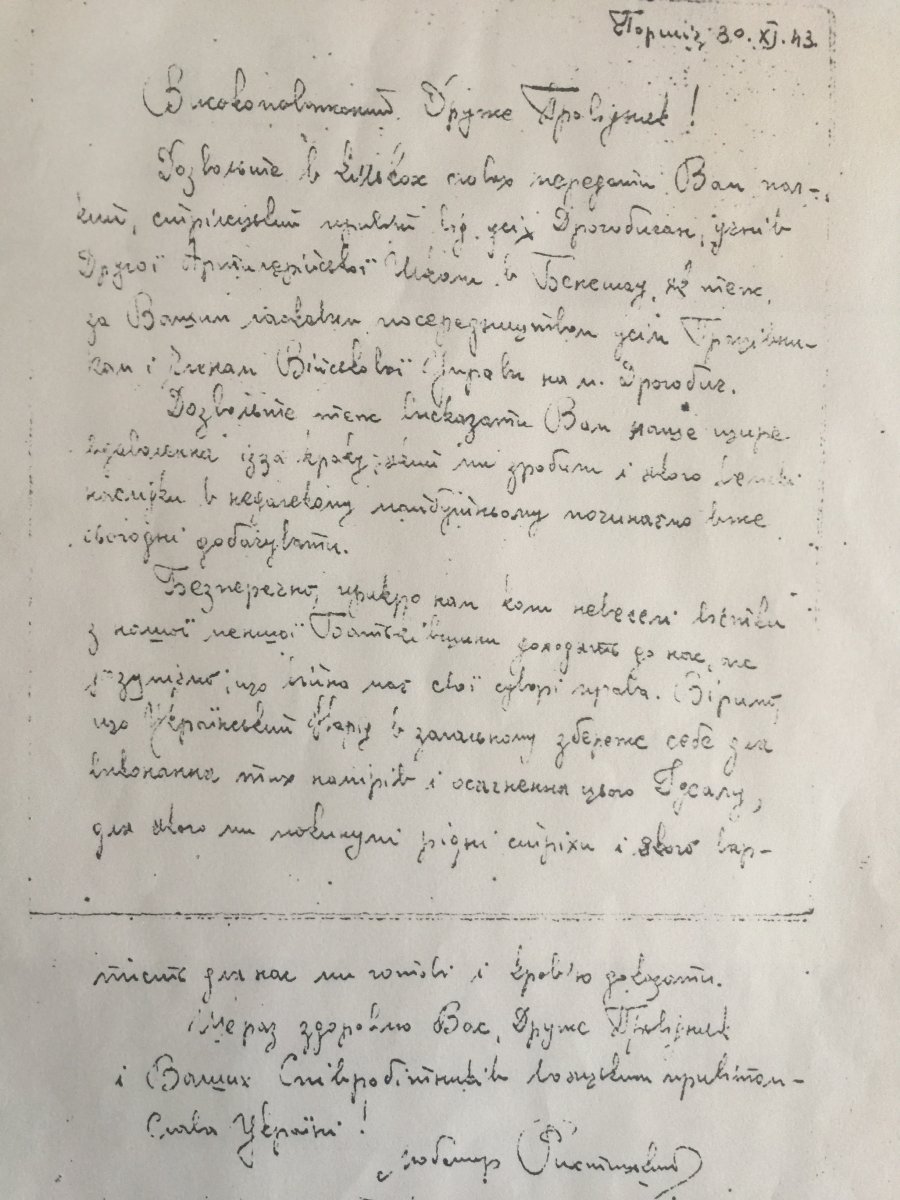 30. XI. 43.
Високоповажаний Друже Провідник!
Дозвольте в кількох словах передати Вам пал-
кий, стрілецький привіт від усіх Дрогобичан, учнів
Другої Артилерійської Школи в Бенешау, як теж,
за Вашим ласкавим посередництвом усім Працівни-
кам і Членам Військової Управи на м. Дрогобич.
Дозвольте теж висказати Вам наше щире
вдоволення ізза кроку, який ми зробили і якого великі
наслідки в недалекому майбутньому починаємо вже
сьогодні добачувати.
Безперечно, прикро нам коли невеселі вістки
з нашої меншої Батьківщини доходять до нас, но
розуміємо, що війна має свої суворі права. Віримо,
що Український Нарід в загальному збереже себе для
виконання тих намірів і осягнення цього Ідеалу,
для якого ми покинули рідні стріхи і якого вар-
тість для нас ми готові і кров'ю доказати.
Ще раз здоровлю Вас, Друже Провідник
і Ваших Співробітників вояцьким привітом –
Слава Україні!
Любомир